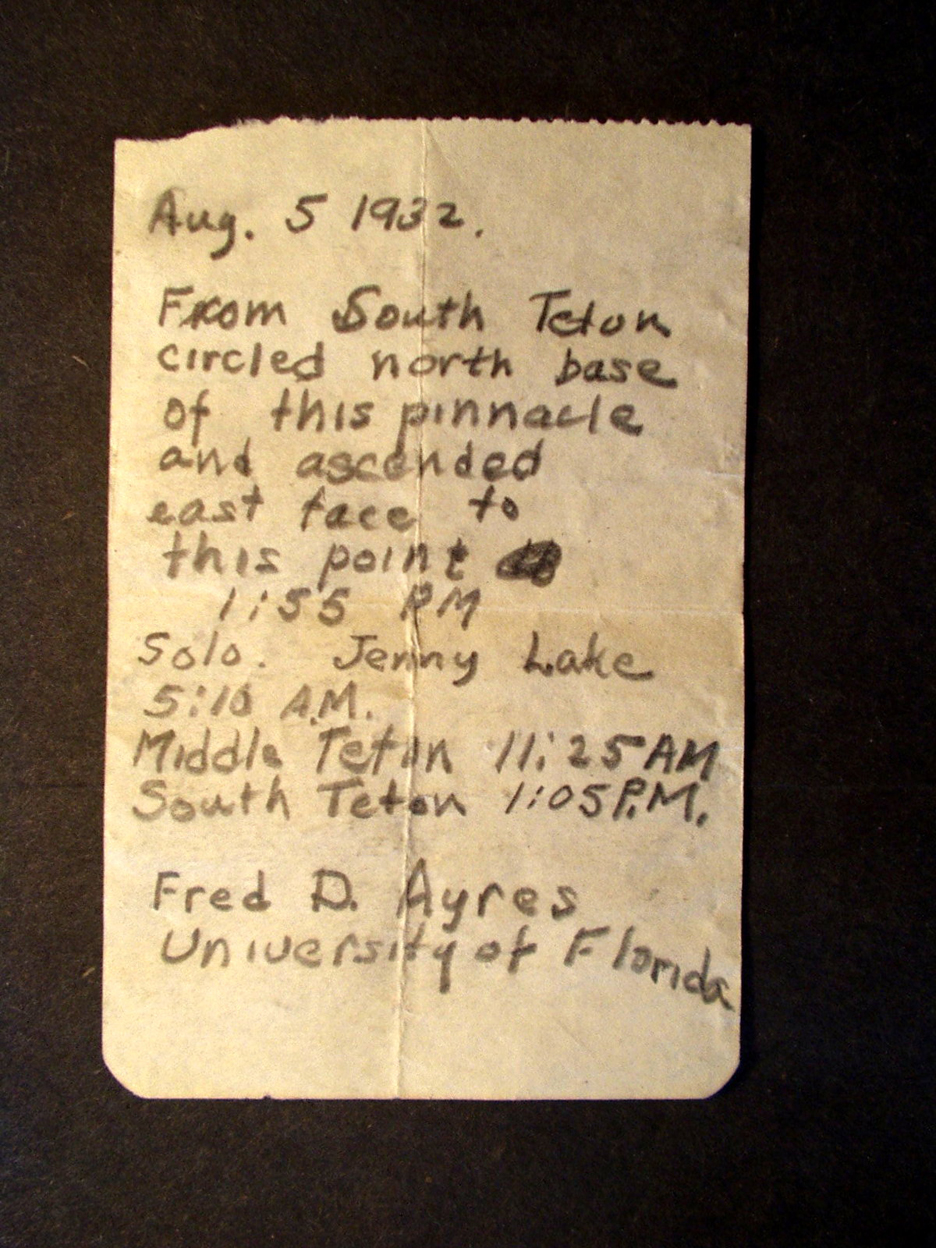 Aug. 5 1932.
From South Teton
circled north base
of this pinnacle
and ascended
east face to
this point
1:55 PM
Solo. Jenny Lake
5:10 A.M.
Middle Teton 11:25 AM
South Teton 1:05 P.M.
Fred D. Ayres
University of Florida